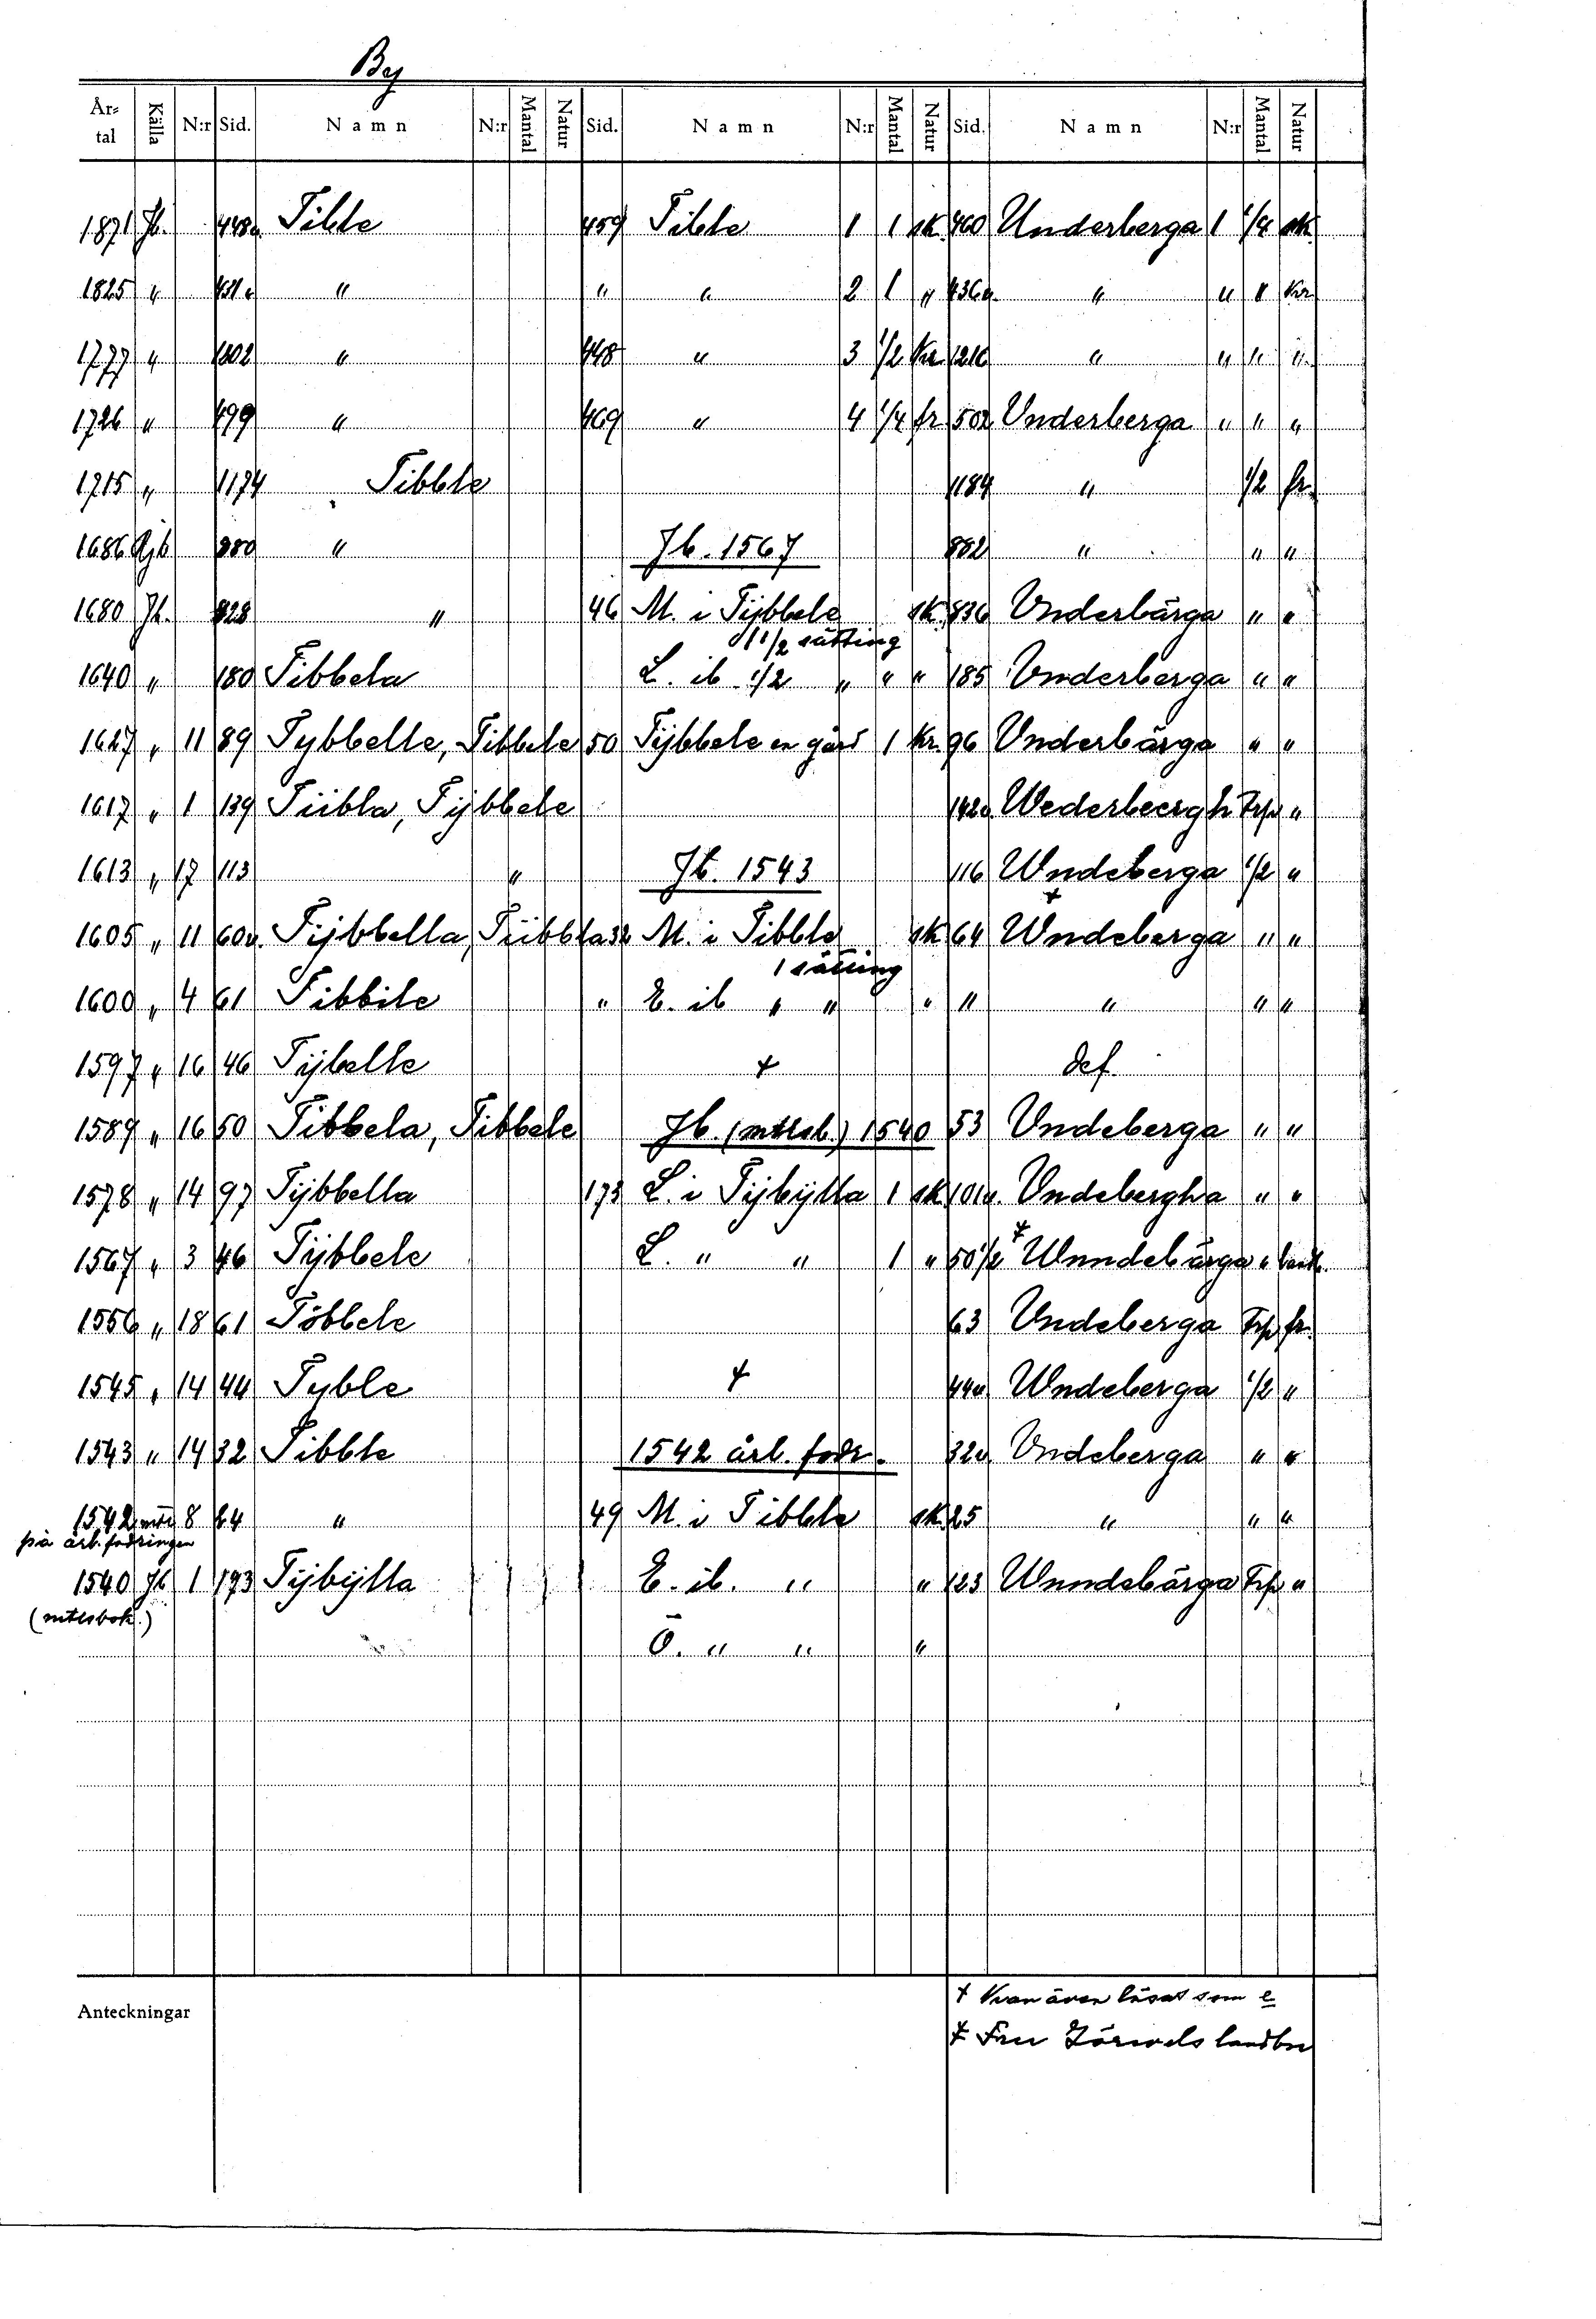 By
Årtal Källa N:r Sid. Namn N:r Mantal Natur Sid. Namn N:r Mantal Natur Sid. Namn N:r Mantal Natur
1871 Jb. Tibble 459 Tibble 1 1 sk. 460 Underberga 1 1/4 sk
1825 " " " " 2 1 " 436v. " " " kr
1777 " " 448 " 3 1/2 kr " " " "
1726 " 499 " 469 " 4 1/4 fr 502 Underberga " " "
1715 " 1174 Tibble 1184 " 1/2 fr.
1686 " Jb. 1567 882 " " "
1680 Jb. 828 " 46 M. i Tijbbele sk. 836 Vnderbärga " "
1 1/2 sätting
1640 " 180 Tibbela L. ib 1/2 " " " 185 Vnderberga " "
1627 " 11 89 Tybbelle, Tibbele 50 Tijbbele en gård 1 kr. 96 Vnderbärga " "
1617 " 1 139 Tiibla, Tijbbele 142v Wederbeergh Trp "
1613 " 17 113 " Jb. 1543 116 Wndeberga 1/2 "
1605 " 11 60v. Tijbbella, Tiibbla 32 M. i Tibble sk 64 Wndeberga " "
1 sätting
1600 " 4 61 Tibbile " E. ib " " " " " " "
1597 " 16 46 Tijbelle + def.
1589 " 16 50 Tibbela, Tibbele Jb. (mtlsb.) 1540 53 Vndeberga " "
1578 " 14 97 Tijbbella 173 L. i Tijbijlla 1 sk 101v. Vndebergha " "
1567 " 3 46 Tijbbele L. " " 1 " 50 1/2 ‡ Wnndebärga " landb.
1556 " 18 61 Többele 63 Vndeberga Trp fr.
1545 " 14 44 Tyble + 44v Wndeberga 1/2 "
1543 " 14 32 Tibble 1542 årl. fodr. 32v Vndeberga " "
1542 8 24 " 49 M. i Tibble sk. 25 " " "
på årl. fodringen
1540 Jb 1 173 Tijbijlla E. ib. " " 123 Wnndebärga Trp "
(mtlsbok.)
Ö. " " "
Anteckningar
+ Kan även läsas som e
‡ Fru landbo